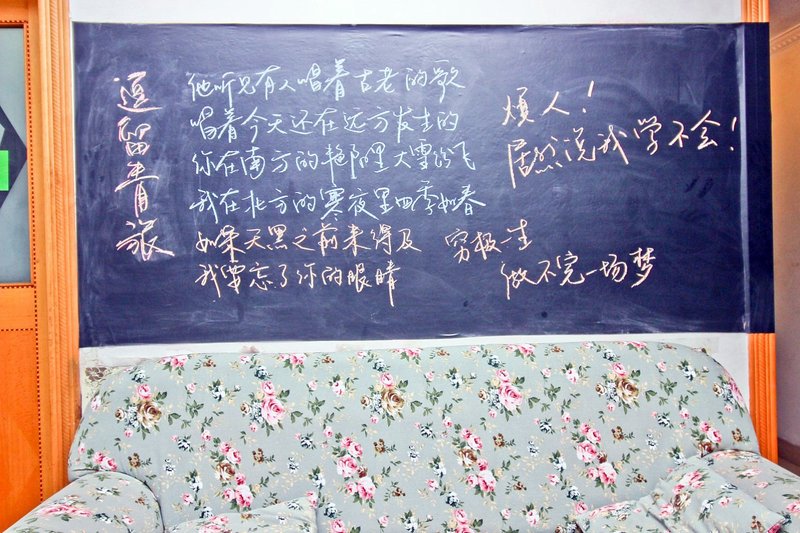 逗留青旅
他听见有人唱着古老的歌
唱着今天还在远方发生的
你在南方的艳阳里大雪纷飞
我在北方的寒夜里四季如春
如果天黑之前来得及
我要忘了你的眼睛
穷极一生
做不完一场梦
煩人！
居然说我学不会！